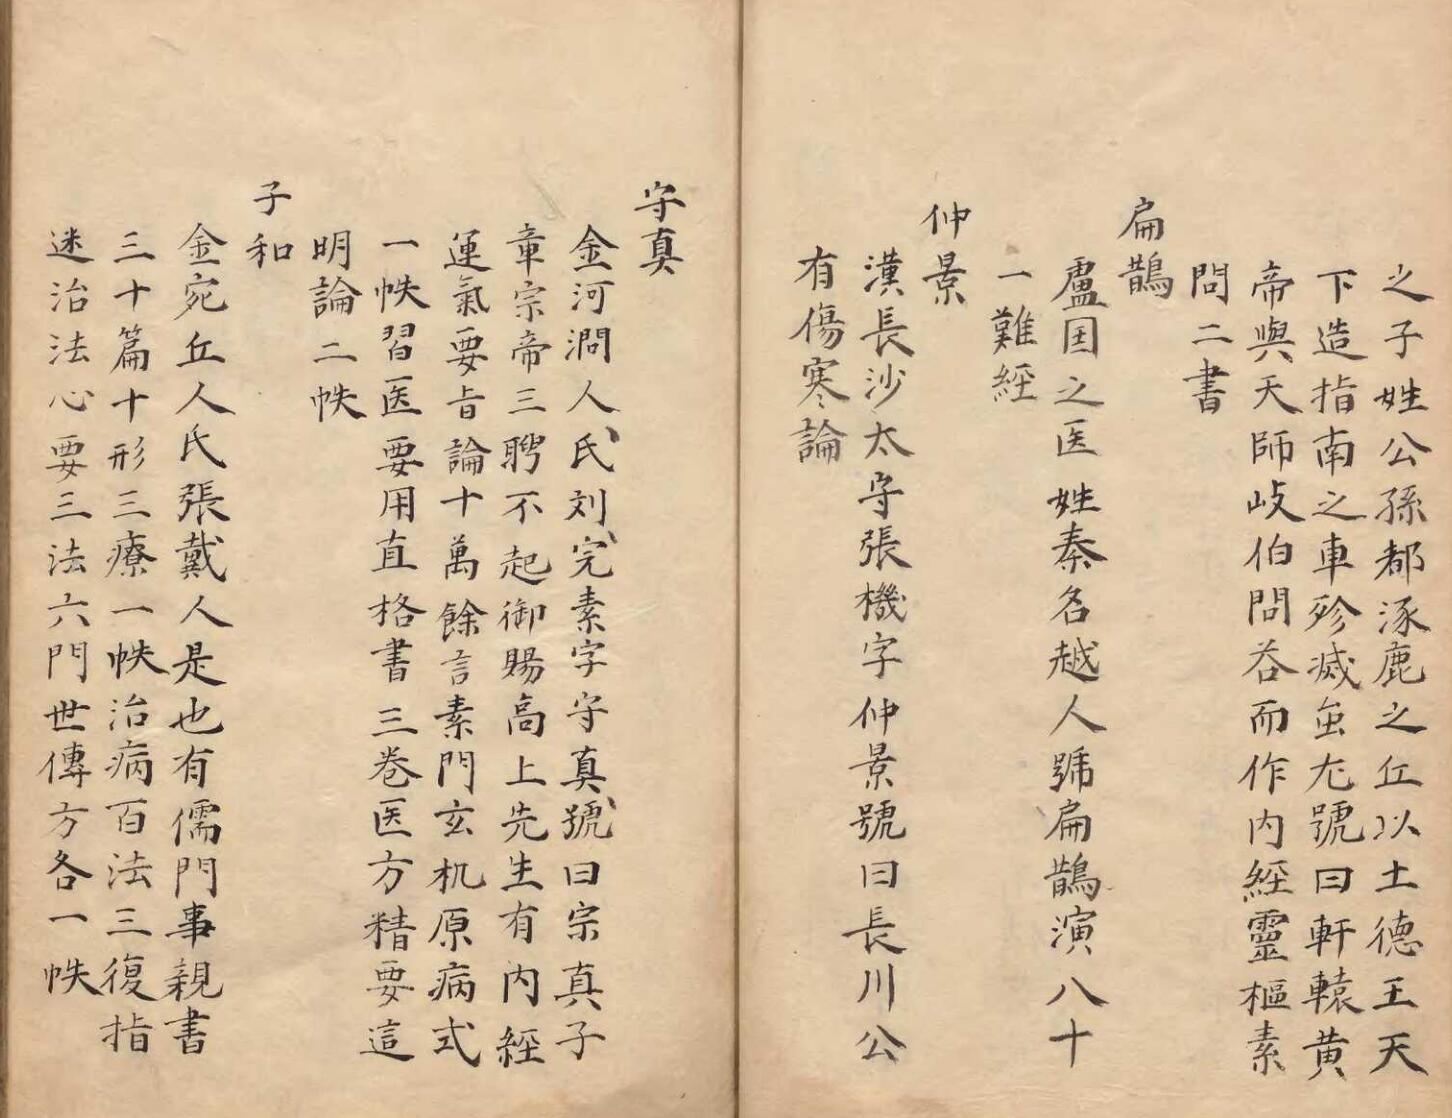 之子姓公孫都涿鹿之丘以土德王天
下造指南之車殄滅蚩尤號曰軒轅黄
帝與天師岐伯問荅而作内經靈樞素
問二書
扁鵲
盧国之医姓秦名越人號扁鵲演八十
一難經
仲景
漢長沙太守張機字仲景號曰長川公
有傷寒論
守真
金河澗人、氏、刘、完素字守真、號、曰宗真子
章宗帝三聘不起御賜高上先生有内經
運氣要旨論十萬餘言素門玄机原病式
一帙習医要用直格書三卷医方精要這
明論二帙
子和
金宛丘人氏張戴人是也有儒門事親書
三十篇十形三療一帙治病百法三復指
迷治法心要三法六門世傳方各一帙